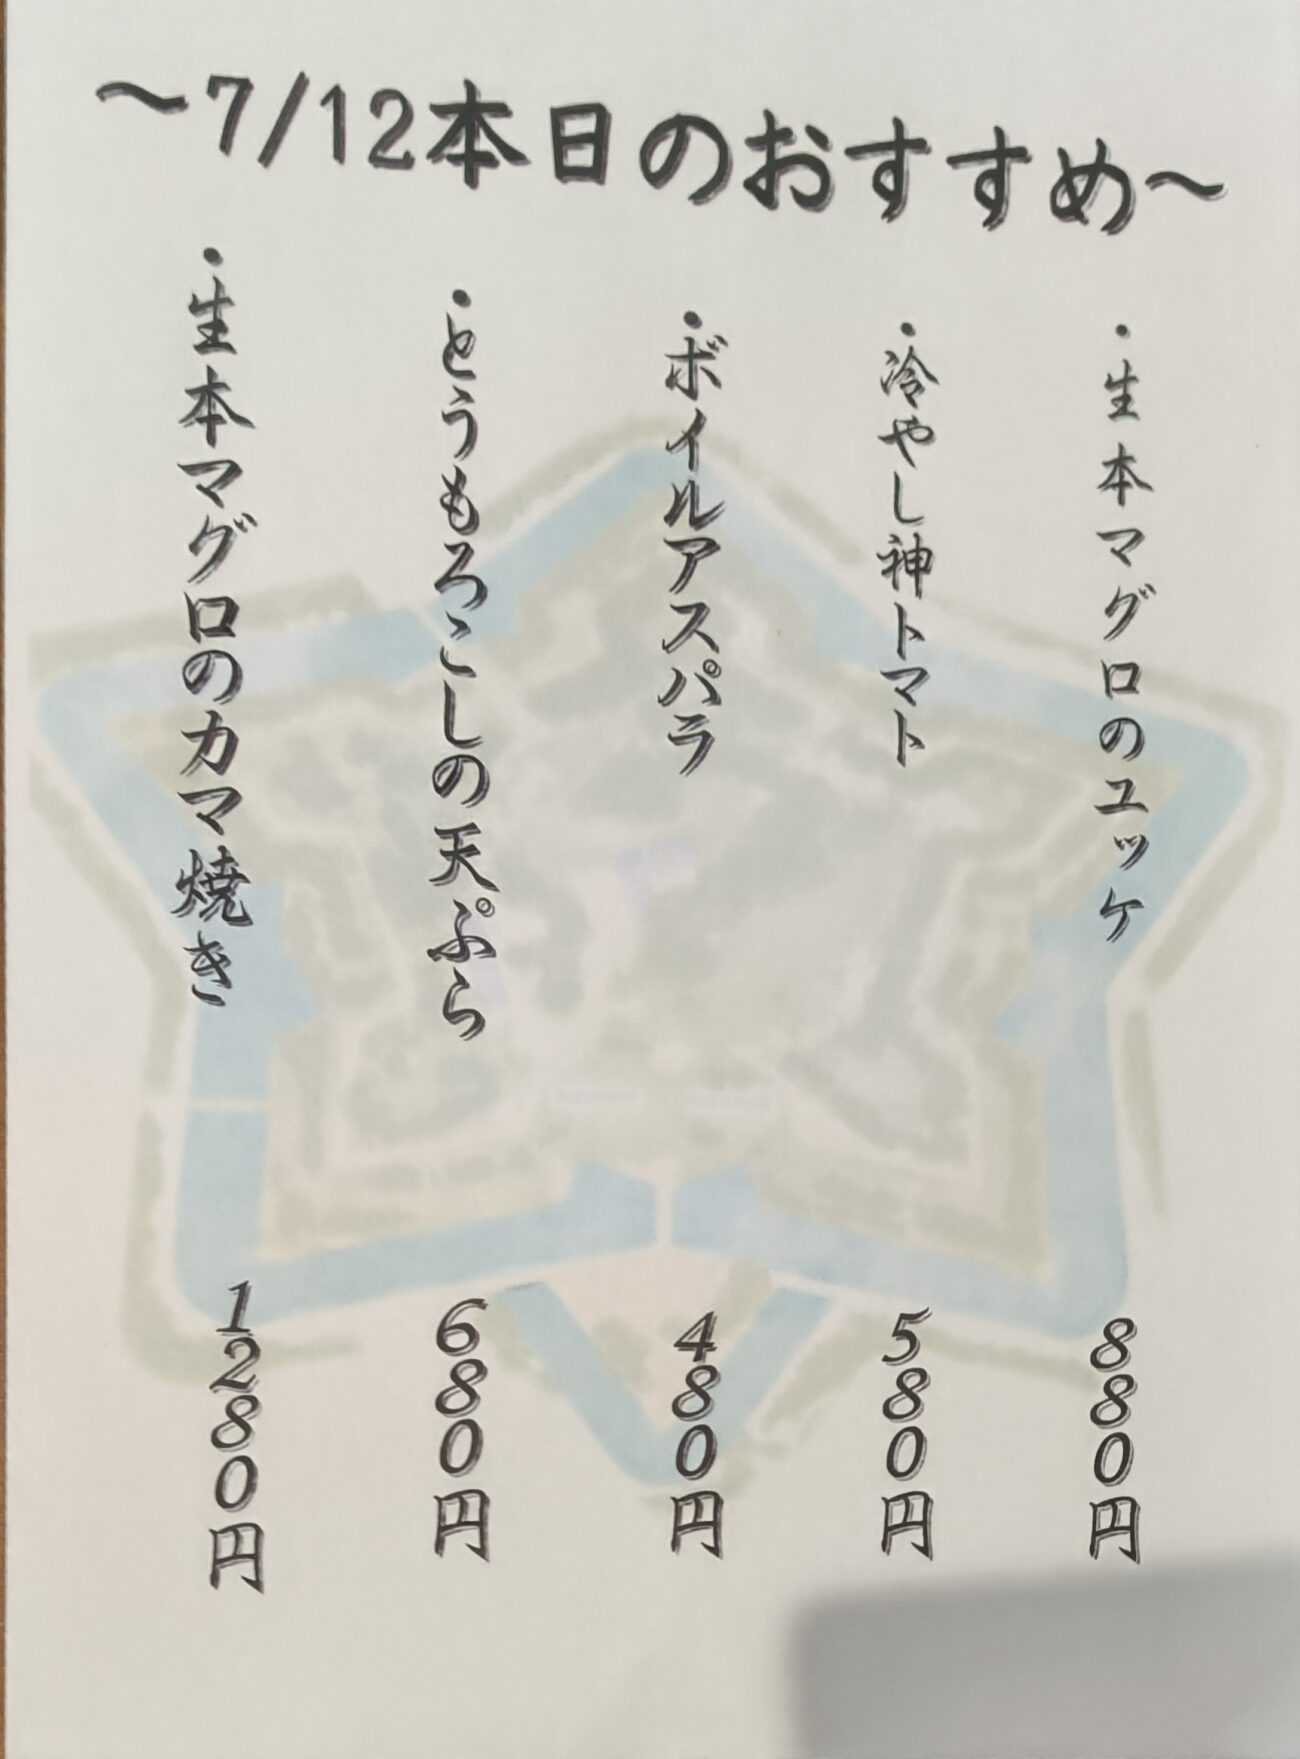 ～7/12本日のおすすめ～
・生本マグロのユッケ 880円
・冷やし神トマト 580円
・ボイルアスパラ 480円
・とうもろこしの天ぷら 680円
・生本マグロのカマ焼き 1280円